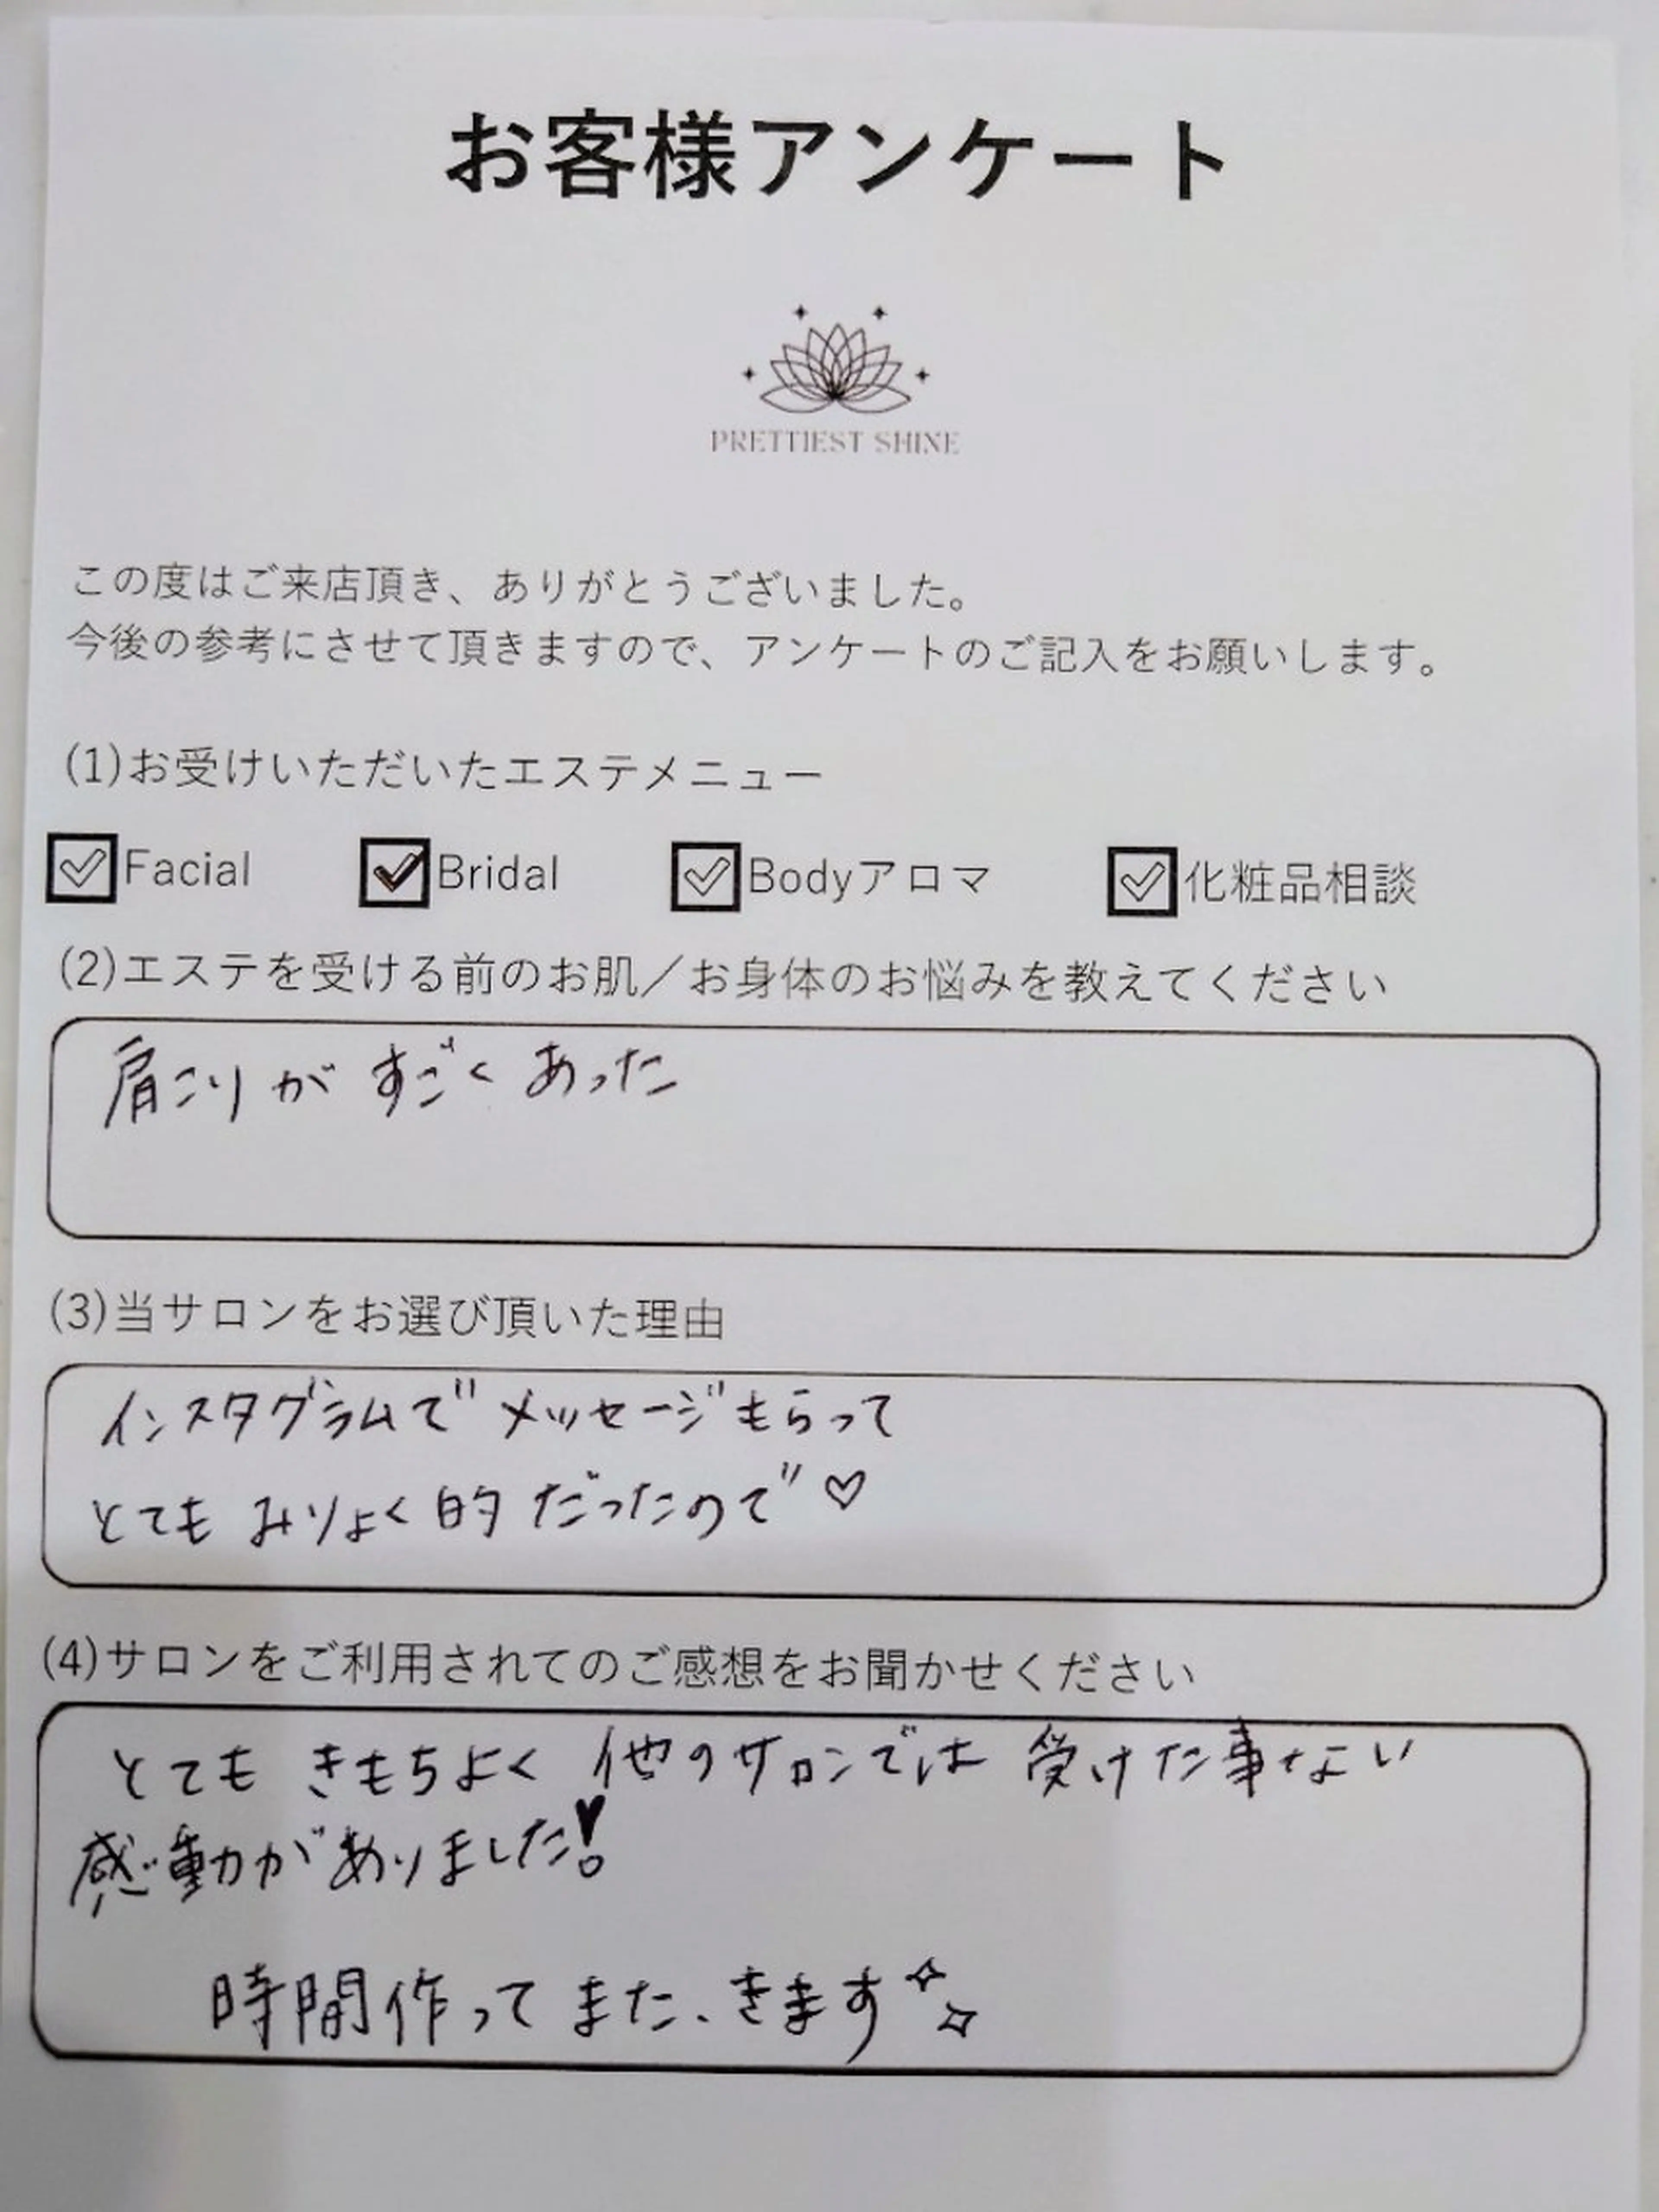 お客様アンケート
PRETTIEST SHINE
この度はご来店頂き、ありがとうございました。
今後の参考にさせて頂きますので、アンケートのご記入をお願いします。
(1)お受けいただいたエステメニュー
Facial Bridal Bodyアロマ 化粧品相談
(2)エステを受ける前のお肌／お身体のお悩みを教えてください
肩こりが すごく あった
(3)当サロンをお選び頂いた理由
インスタグラムで メッセージもらって
とても みりょく的 だったので♡
(4)サロンをご利用されてのご感想をお聞かせください
とても きもちよく 他のサロンでは 受けた事ない
感動がありました!
時間作って また、きます